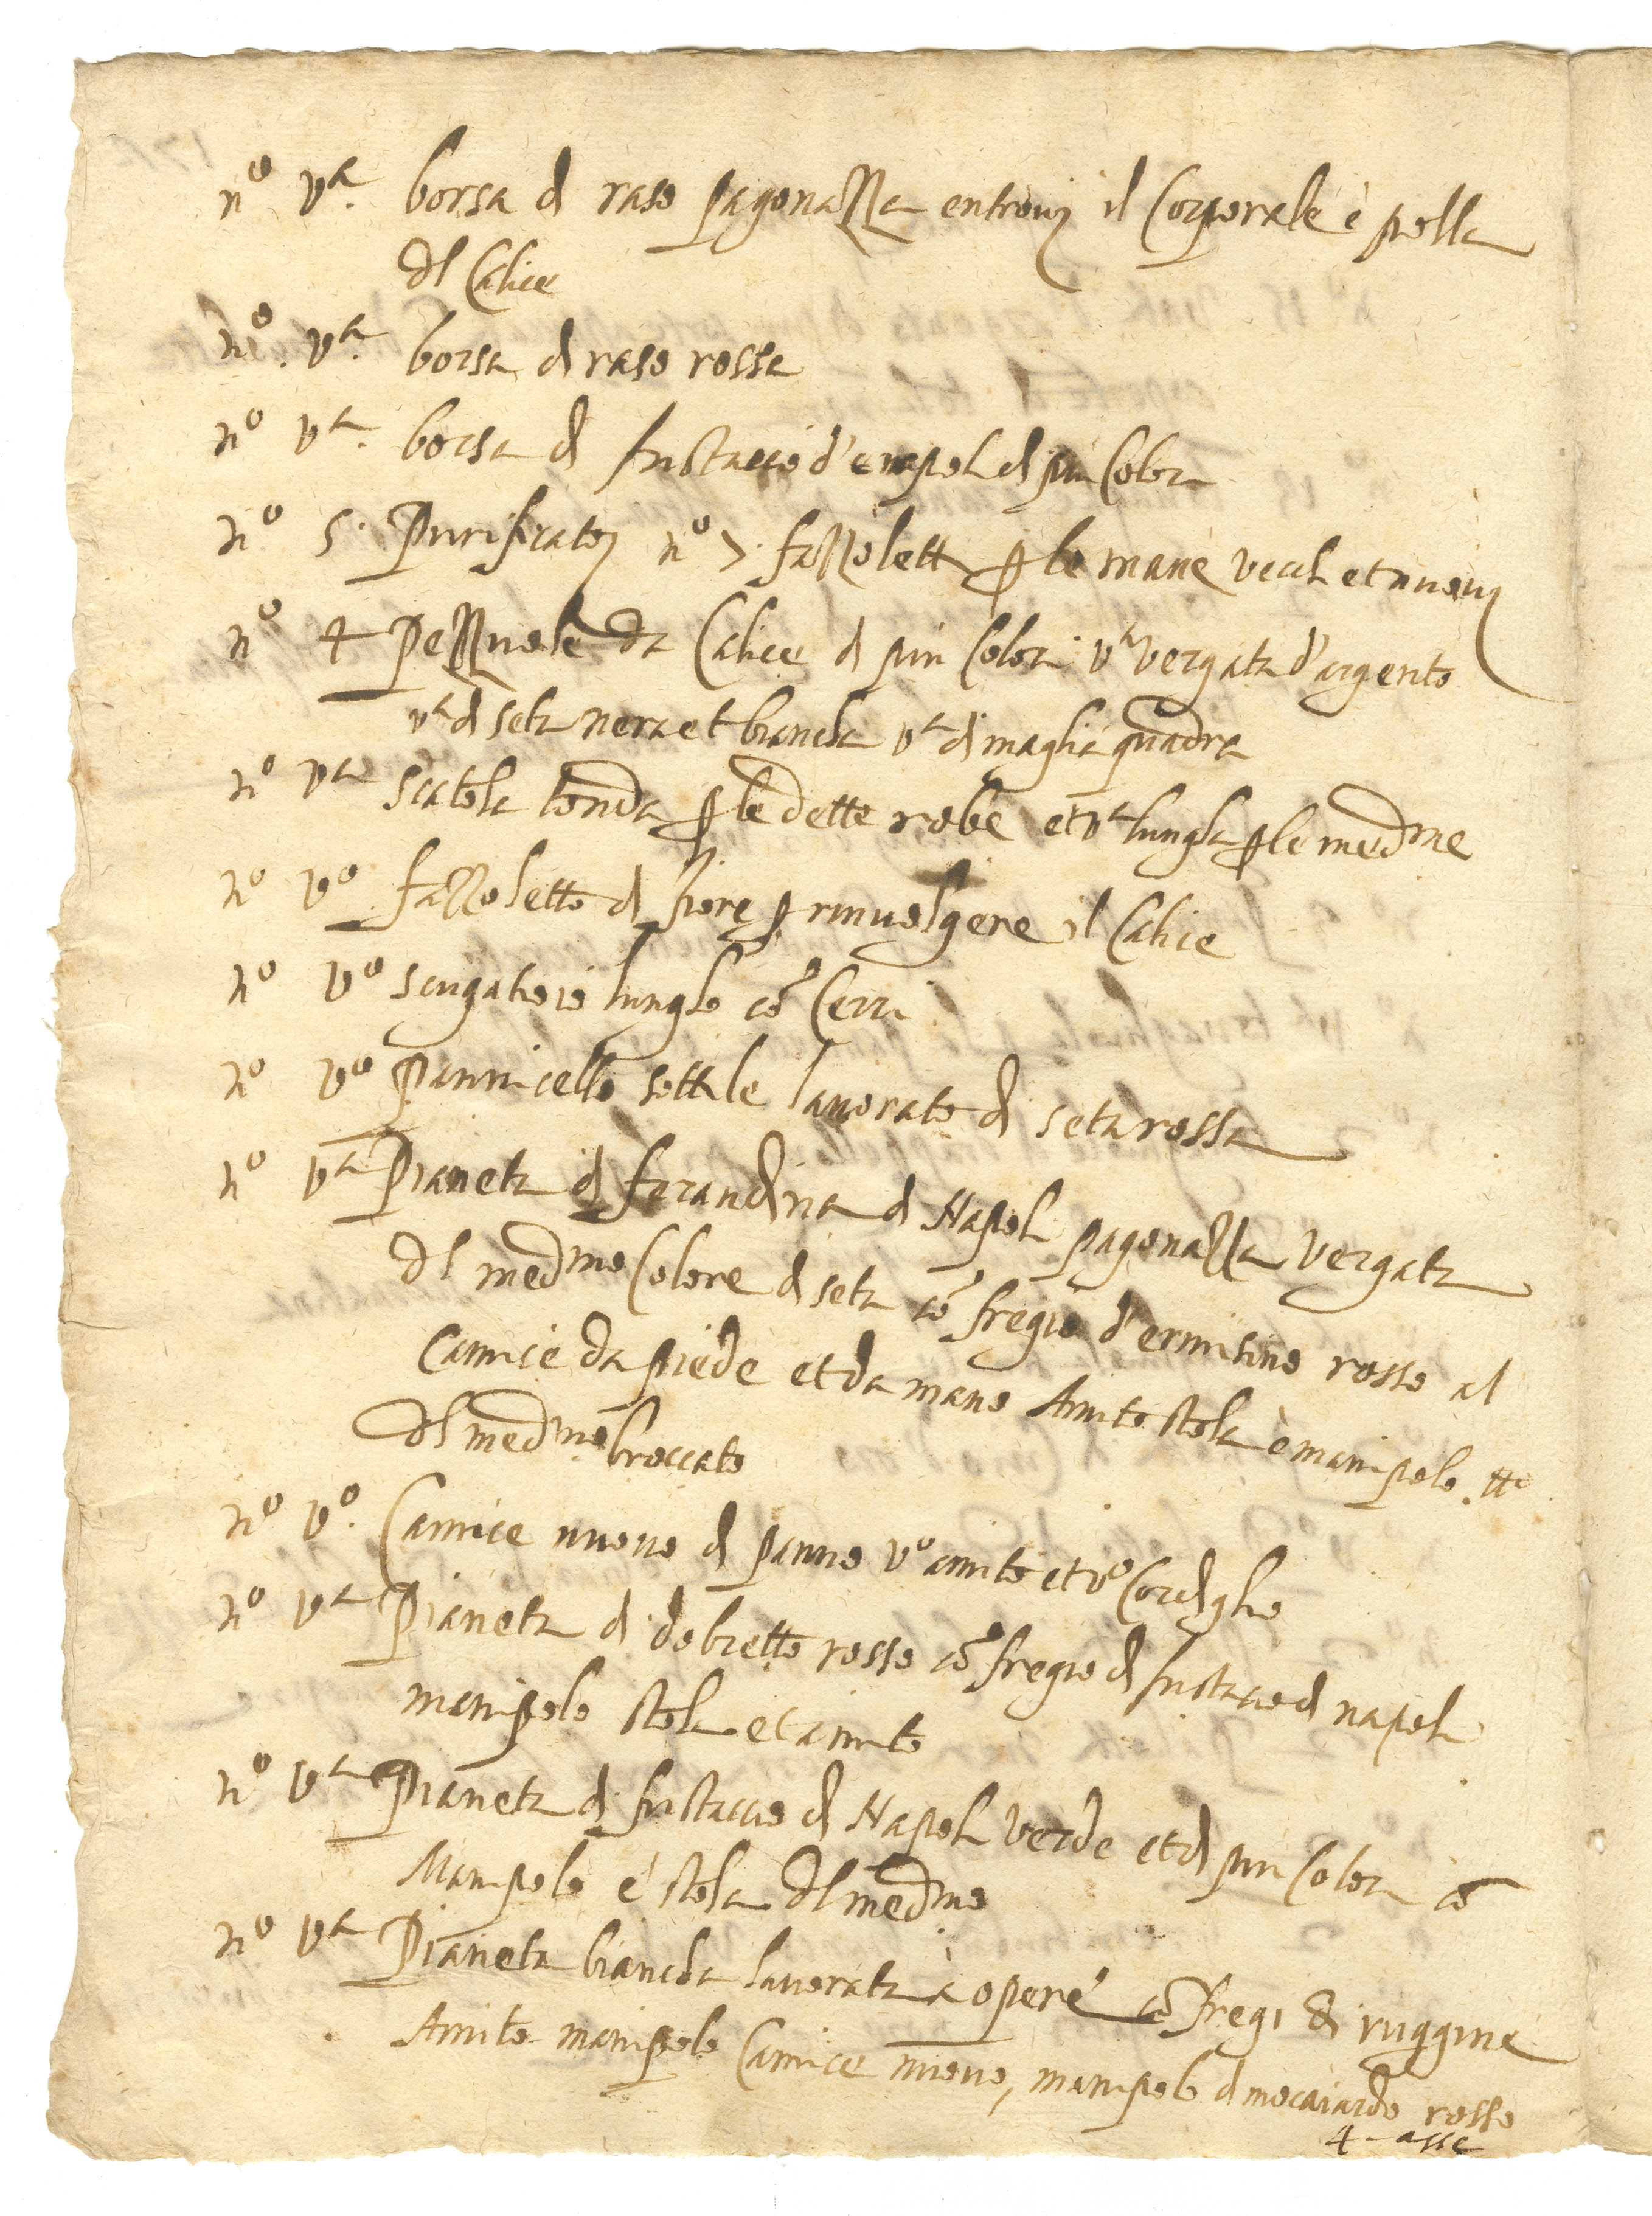 nº vª. borsa di raso pagonazza entrovi il Corporale è palla
dl Calice
nº. vª. borsa di raso rossa
nº vª. borsa di frustaccio d'enapoli di piu Colori
nº 5. Purificatoj nº 7. fazzoletti p le mane vecch et nuovi
nº 4 Pezzuole da Calice di piu Colori vª vergata d'argento
vª di seta nera et biancha vª di maglia quadra
nº vª scatola tonda p le dette robe et vª lungha p le medme
nº vº fazzoletto di fiore p rinvolgere il Calice
nº vº sciugatoio lungho cō Cerri
nº vº Pannicello sottile lavorato di seta rossa
nº vª Pianeta di ferandina di Napoli pagonazza vergata
dl medmo Colore di seta cō fregio d'ermisino rosso al
Camice da piede et da mano Amito stola è manipolo. tto
dl medmo broccato
nº vº. Camice nuovo di panno vº amito et vº Cordiglio
nº vª Pianeta di dobretto rosso cō fregio di frustacio di napoli
manipolo stola et amito
nº vª Pianeta di frustaccio di Napoli verde et di piu Colori cō
Manipolo e stola dl medmo
nº vª Pianeta biancha lavorata à opere cō fregi di ruggine
Amito manipolo Camice nuovo, manipolo di mocaiardo rosso
4 - asse